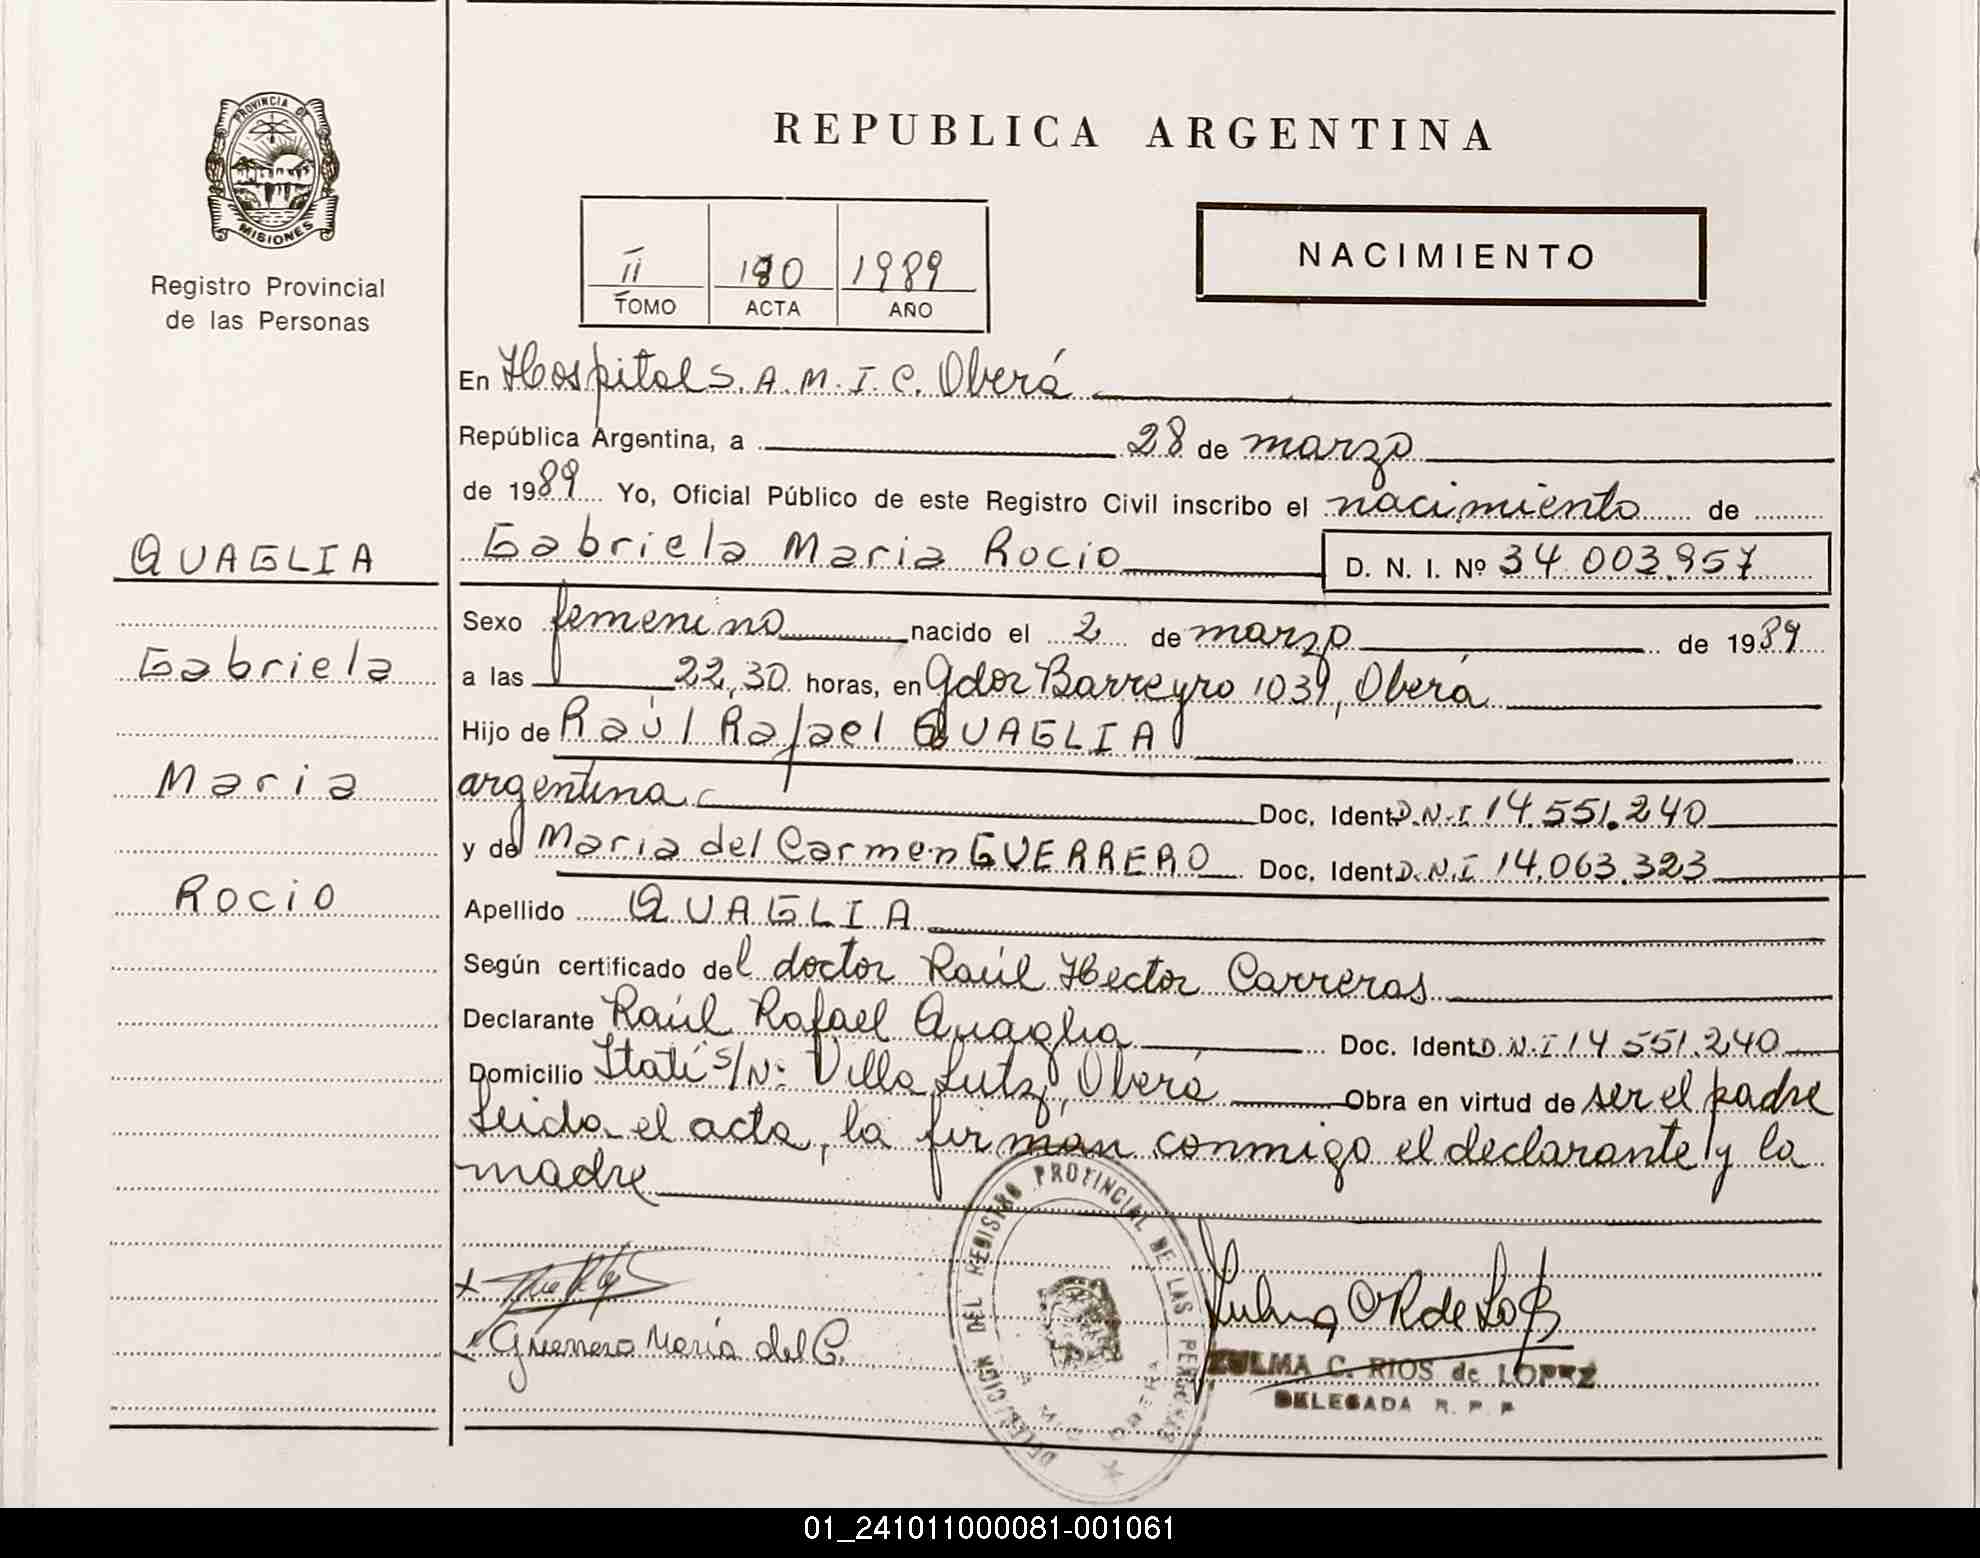 PROVINCIA DE
MISIONES
Registro Provincial
de las Personas
REPUBLICA ARGENTINA
II TOMO
ACTA
1989 AÑO
NACIMIENTO
En Hospital S.A.M.I.C. Oberá
República Argentina, a 28 de marzo
de 1989 Yo, Oficial Público de este Registro Civil inscribo el nacimiento de
QUAGLIA
Gabriela Maria Rocio D. N. I. Nº 34.003.957
Sexo femenino nacido el 2 de marzo de 1989
Gabriela
a las 22,30 horas, en Gdor Barreyro 1039, Oberá
Hijo de Raúl Rafael QUAGLIA
Maria
argentina Doc. Ident. D.N.I 14.551.240
y de Maria del Carmen GUERRERO Doc. Ident. D.N.I 14.063.323
Rocio
Apellido QUAGLIA
Según certificado del doctor Raúl Hector Carreras
Declarante Raúl Rafael Quaglia Doc. Ident. D.N.I 14.551.240
Domicilio Itatí s/Nº Villa Lutz, Oberá Obra en virtud de ser el padre
Leida el acta, la firman conmigo el declarante y la
madre
DELEGACION DEL REGISTRO PROVINCIAL DE LAS PERSONAS
Guerrero María del C.
ZULMA C. RIOS de LOPEZ
DELEGADA R. P. P.
01_241011000081-001061